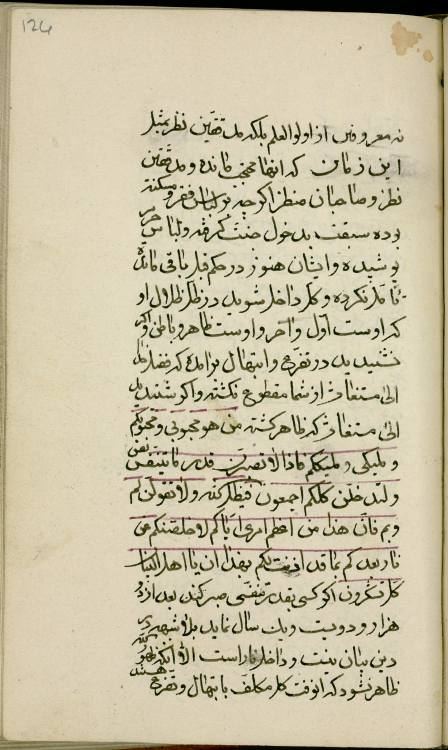 126
نه معروفین از اولو العلم بلکه مدققین نظر بمثل
این زمان که انها محتجب مانده و مدققین
نظر و صاحبان منظر اکرچه در لباس فقر و مسکنة
بوده سبقت بدخول جنت کرفته و لباس حریر
پوشیده و ایشان هنوز در حکم قبل باقی مانده
تأمل نکرده و کل داخل شوید در ظل ظلال او
که اوست اول و اخر و اوست ظاهر و باطن و اکر
نشنیدید در تضرع و ابتهال بوامده که فضل
الی مستغاث از شما مقطوع نکشته و اکر شنیدید
الی مستغاث که ظاهر کشته من هو محبوبی و محبوبکم
و ملیکی و ملیککم فاذا لا تصبرن قدر ما یتنفس نفس
و لتدخلن کلکم اجمعون فی ظل الله و لا تقولن لم
و بم فان هذا من اعظم امری ایاکم لاخلصنکم عن
نار بعدکم بما قد امنتکم بهذا ان یا اهل البیان
کل تشکرون اکر کسی بقدر تنفسی صبر کند بعد از دو
هزار و دویست و یک سال نماید بلا شبهه در
دین بیان نیست و داخل نار است الا انکه ظهور الله
ظاهر نشود که انوقت کل مکلف بابتهال و تضرع هستند